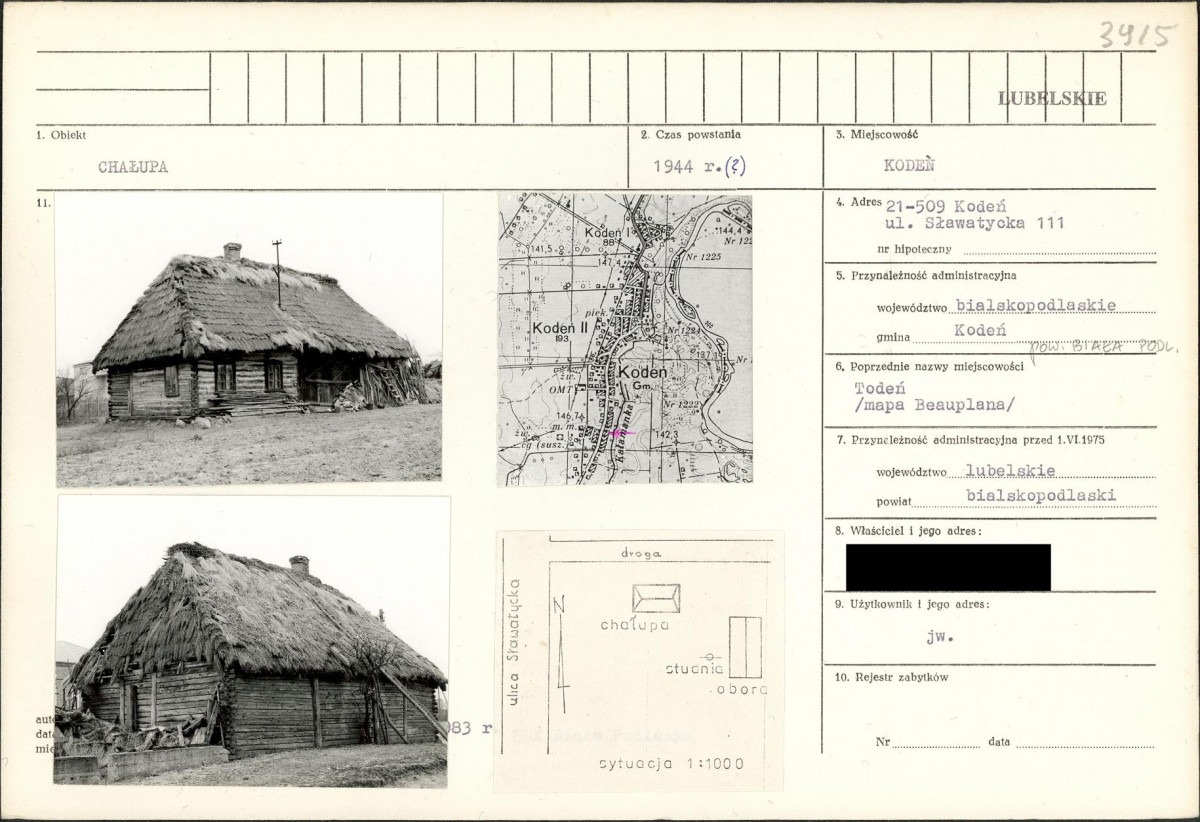 3915
LUBELSKIE
1. Obiekt
CHAŁUPA
2. Czas powstania
1944 r.(?)
3. Miejscowość
KODEŃ
11.
4. Adres 21-509 Kodeń
ul. Sławatycka 111
nr hipoteczny
5. Przynależność administracyjna
województwo bialskopodlaskie
gmina Kodeń
pow. BIAŁA PODL.
6. Poprzednie nazwy miejscowości
Todeń
/mapa Beauplana/
7. Przynależność administracyjna przed 1.VI.1975
województwo lubelskie
powiat bialskopodlaski
8. Właściciel i jego adres:
9. Użytkownik i jego adres:
jw.
10. Rejestr zabytków
Nr data
Kodeń I
88
144,4
Nr 122
141,5
147,4
Nr 1225
piek.
Kodeń II
193
Nr 1224
137,1
Nr 1
Kodeń
Gm.
żw.
OMT
Nr 1222
146,7
m. m.
żw.
cg (susz.)
Kałamanka
142,3
droga
ulica Sławatycka
N
chałupa
studnia
obora
sytuacja 1:1000
auto
data
mie
983 r